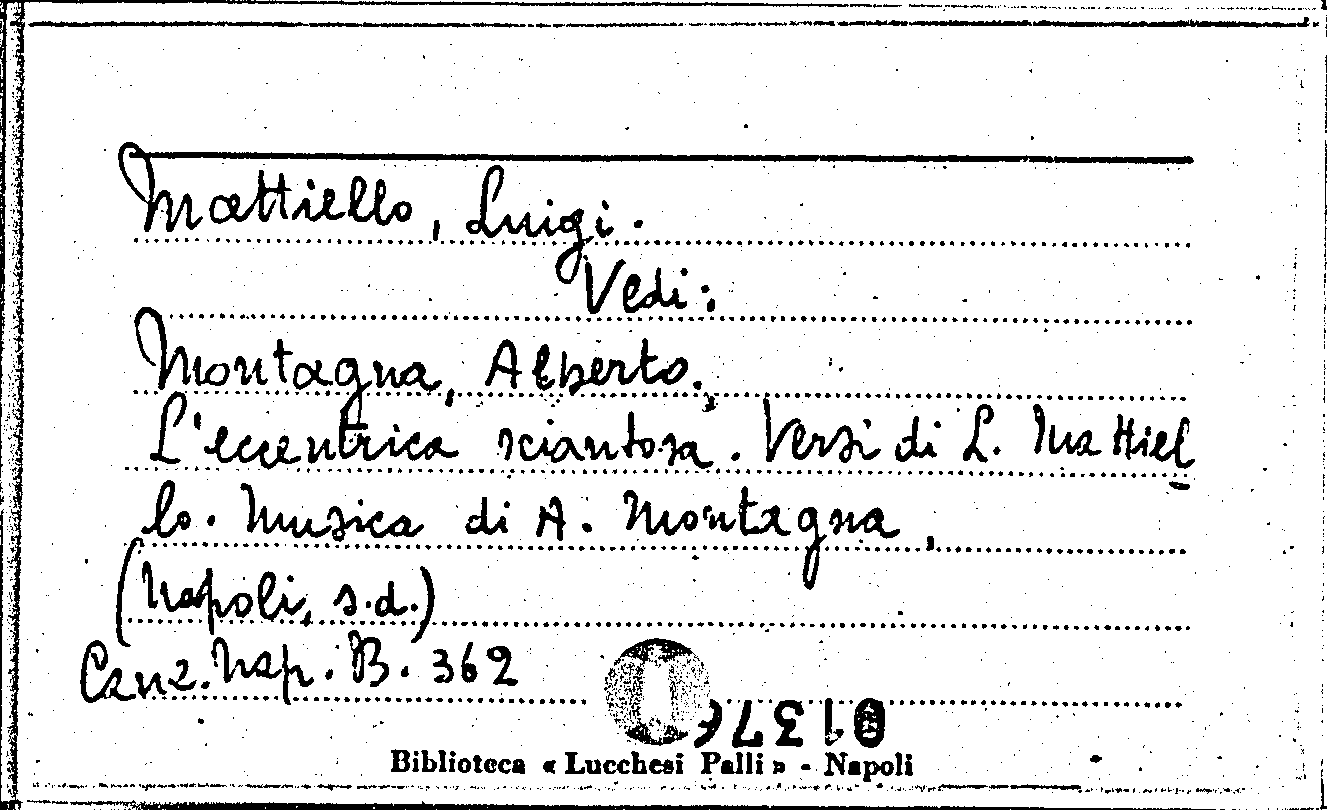 Mattiello, Luigi.
Vedi:
Montagna, Alberto.
L'eccentrica sciantosa. Versi di L. Mattiel
lo. Musica di A. Montagna,
(Napoli, s.d.)
Canz. Nap. B. 362
Biblioteca « Lucchesi Palli » - Napoli